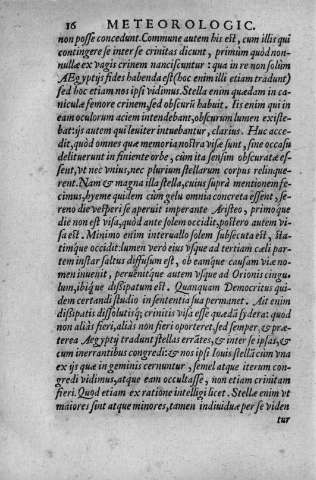 16 METEOROLOGIC.
non posse concedunt. Commune autem his est, cum illis qui
contingere se inter se crinitas dicunt, primùm quòd non-
nullæ ex vagis crinem nanciscuntur: qua in re non solìm
AEgyptijs fides habenda est (hoc enim illi etiam tradunt)
sed hoc etiam nos ipsi vidimus. Stella enim quædam in ca-
niculæ femore crinem, sed obscurũ habuit. Iis enim qui in
eam oculorum aciem intendebant, obscurum lumen existe-
bat: ijs autem qui leuiter intuebantur, clarius. Huc acce-
dit, quòd omnes quæ memoria nostra visæ sunt, sine occasu
delituerunt in finiente orbe, cùm ita sensim obscuratæ es-
sent, vt nec vnius, nec plurium stellarum corpus relinque-
rent. Nam & magna illa stella, cuius suprà mentionem fe-
cimus, hyeme quidem cùm gelu omnia concreta essent, se-
reno die vesperi se aperuit imperante Aristeo, primoque
die non est visa, quòd ante solem occidit, postero autem vi-
sa est. Minimo enim interuallo solem subsecuta est, sta-
timque occidit: lumen verò eius vsque ad tertiam cæli par-
tem instar saltus diffusum est, ob eamque causam viæ no-
men inuenit, peruenitque autem vsque ad Orionis cingu-
lum, ibique dissipatum est. Quanquam Democritus qui-
dem certandi studio in sententia sua permanet. Ait enim
dissipatis dissolutisq; crinitis visa esse quædã sydera: quod
non aliàs fieri, aliàs non fieri oporteret, sed semper, & præ-
terea Aegyptij tradunt stellas errãtes, & inter se ipsas, &
cum inerrantibus congredi: & nos ipsi Iouis stellã cùm vna
ex ijs quæ in geminis cernuntur, semel atque iterum con-
gredi vidimus, atque eam occultasse, non etiam crinitam
fieri. Quod etiam ex ratione intelligi licet. Stellæ enim vt
maiores sint atque minores, tamen indiuiduæ per se viden
tur